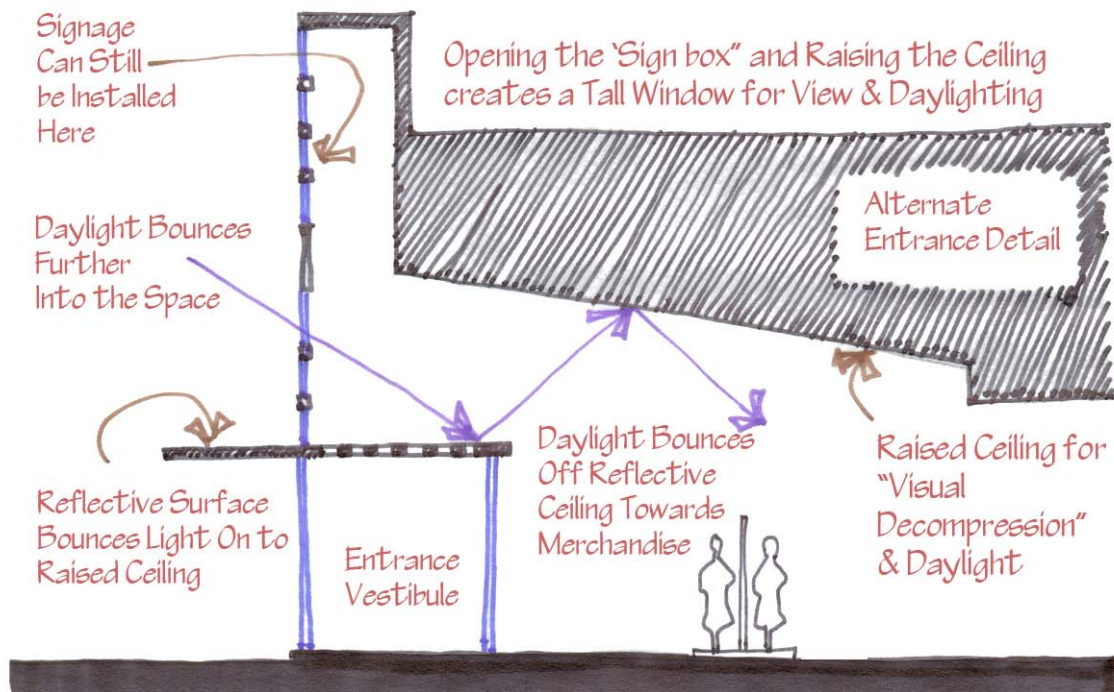 Signage
Can Still
be Installed
Here
Opening the 'Sign box" and Raising the Ceiling
creates a Tall Window for View & Daylighting
Alternate
Entrance Detail
Daylight Bounces
Further
Into the Space
Reflective Surface
Bounces Light On to
Raised Ceiling
Entrance
Vestibule
Daylight Bounces
Off Reflective
Ceiling Towards
Merchandise
Raised Ceiling for
"Visual
Decompression"
& Daylight